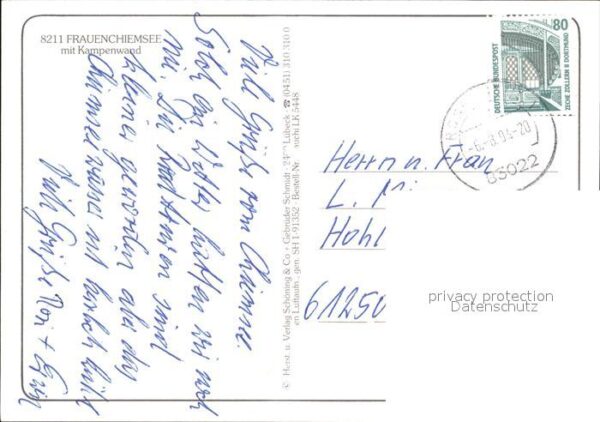 8211 FRAUENCHIEMSEE
mit Kampenwand
Viel Grüße vom Chiemsee.
Solch ein Wetter hatten wir noch
nie. Die sind
kleiner geworden als das
Chiemsee
Viel Grüße
© Herst. u. Verlag Schöning & Co · Gebrüder Schmidt · Lübeck · ☎ (0451) 310 310 0
en Luftaufn., gen. SH 1-91352 · Bestell-Nr. LK 5448
80
DEUTSCHE BUNDESPOST
ZECHE ZOLLERN II DORTMUND
-6.-8.94-20
83022
Herrn u. Frau
L.
Hohl
61250
privacy protection
Datenschutz